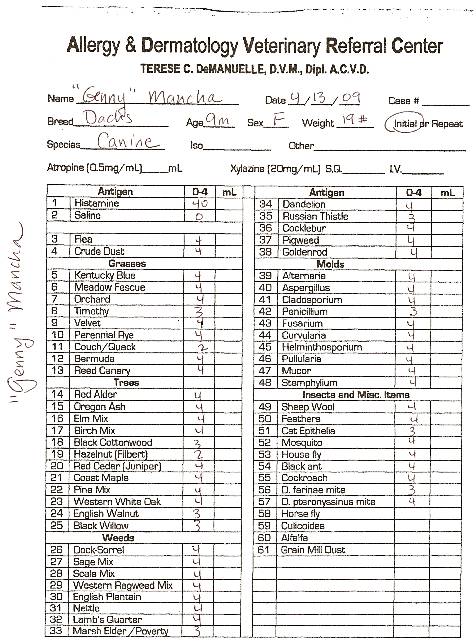 Allergy & Dermatology Veterinary Referral Center
TERESE C. DeMANUELLE, D.V.M., Dipl. A.C.V.D.
Name "Genny" Mancha Date 4/13/09 Case #
Breed Age 9m Sex F Weight 19# Initial or Repeat
Species Canine Iso Other
Atropine (0.5mg/mL) mL Xylazine (20mg/mL) S.Q. I.V.
"Genny" Mancha
Antigen 0-4 mL
1 Histamine 40
2 Saline 0
3 Flea 4
4 Crude Dust 4
Grasses
5 Kentucky Blue 4
6 Meadow Fescue 4
7 Orchard 4
8 Timothy 3
9 Velvet 4
10 Perennial Rye 4
11 Couch/Quack 2
12 Bermuda 4
13 Reed Canary 4
Trees
14 Red Alder 4
15 Oregon Ash 4
16 Elm Mix 4
17 Birch Mix 4
18 Black Cottonwood 3
19 Hazelnut (Filbert) 2
20 Red Cedar (Juniper) 4
21 Coast Maple 4
22 Pine Mix 4
23 Western White Oak 4
24 English Walnut 3
25 Black Willow 3
Weeds
26 Dock-Sorrel 4
27 Sage Mix 4
28 Scale Mix 4
29 Western Ragweed Mix 4
30 English Plantain 4
31 Nettle 4
32 Lamb's Quarter 4
33 Marsh Elder/Poverty 3
Antigen 0-4 mL
34 Dandelion 4
35 Russian Thistle 3
36 Cocklebur 4
37 Pigweed 4
38 Goldenrod 4
Molds
39 Alternaria 4
40 Aspergillus 4
41 Cladosporium 4
42 Penicillium 3
43 Fusarium 4
44 Curvularia 4
45 Helminthosporium 4
46 Pullularia 4
47 Mucor 4
48 Stemphylium 4
Insects and Misc. Items
49 Sheep Wool 4
50 Feathers 4
51 Cat Epithelia 3
52 Mosquito 4
53 House fly 4
54 Black ant 4
55 Cockroach 4
56 D. farinae mite 3
57 D. pteronyssinus mite 4
58 Horse fly
59 Culicoides
60 Alfalfa
61 Grain Mill Dust